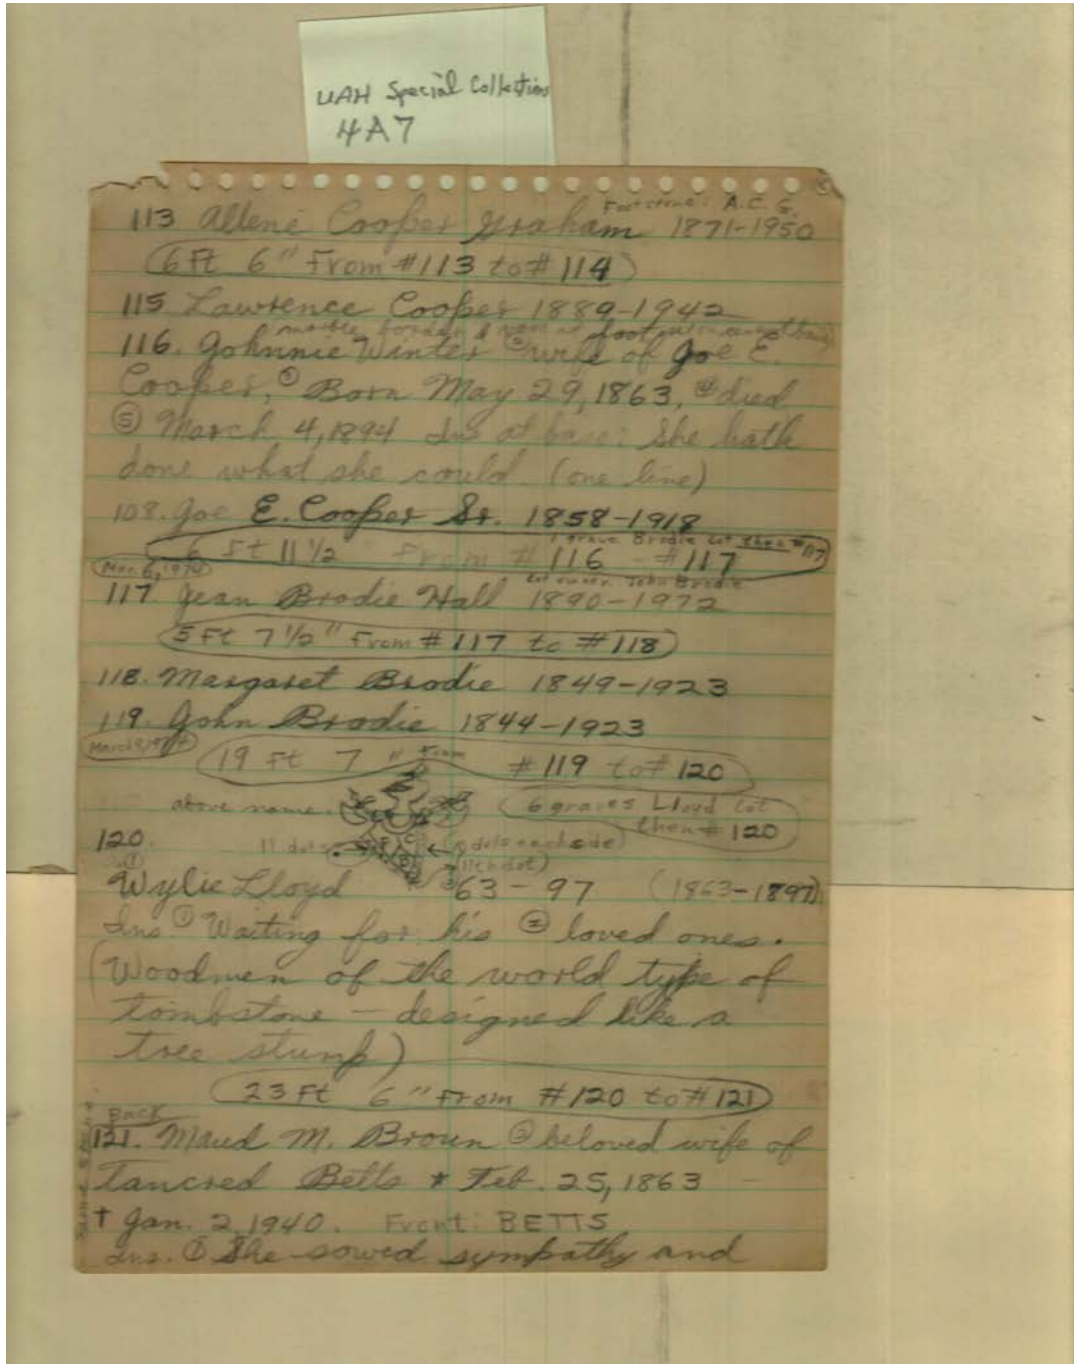 UAH Special Collections
4A7
Footstone: A.C.G.
113 Allene Cooper Graham 1871-1950
6 Ft 6" From #113 to #114
115 Lawrence Cooper 1889-1942
marble border &
116. Johnnie Winter ② wife of Joe E.
Cooper, ③ Born May 29, 1863, ④ died
⑤ March 4, 1894 Ins at base: She hath
done what she could (one line)
108. Joe E. Cooper Sr. 1858-1918
1 grave Brodie lot then #117
6 Ft 11 1/2 From #116 - #117
Mar. 6, 1974
Lot owner John Brodie
117 Jean Brodie Hall 1890-1972
5 Ft 7 1/2" From #117 to #118
118. Margaret Brodie 1849-1923
119. John Brodie 1844-1923
19 Ft 7" From #119 to #120
above name.
6 graves Lloyd lot
then #120
120.
11 dots
dots each side)
(11th dot)
① Wylie Lloyd ③ 63-97 (1863-1897)
Ins. ① Waiting for his ② loved ones.
(Woodmen of the world type of
tombstone - designed like a
tree stump)
23 Ft 6" From #120 to #121
Back
121. Maud M. Broun ② beloved wife of
Tancred Betts * Feb. 25, 1863 -
† Jan. 2, 1940. Front: BETTS
Ins. ① She sowed sympathy and